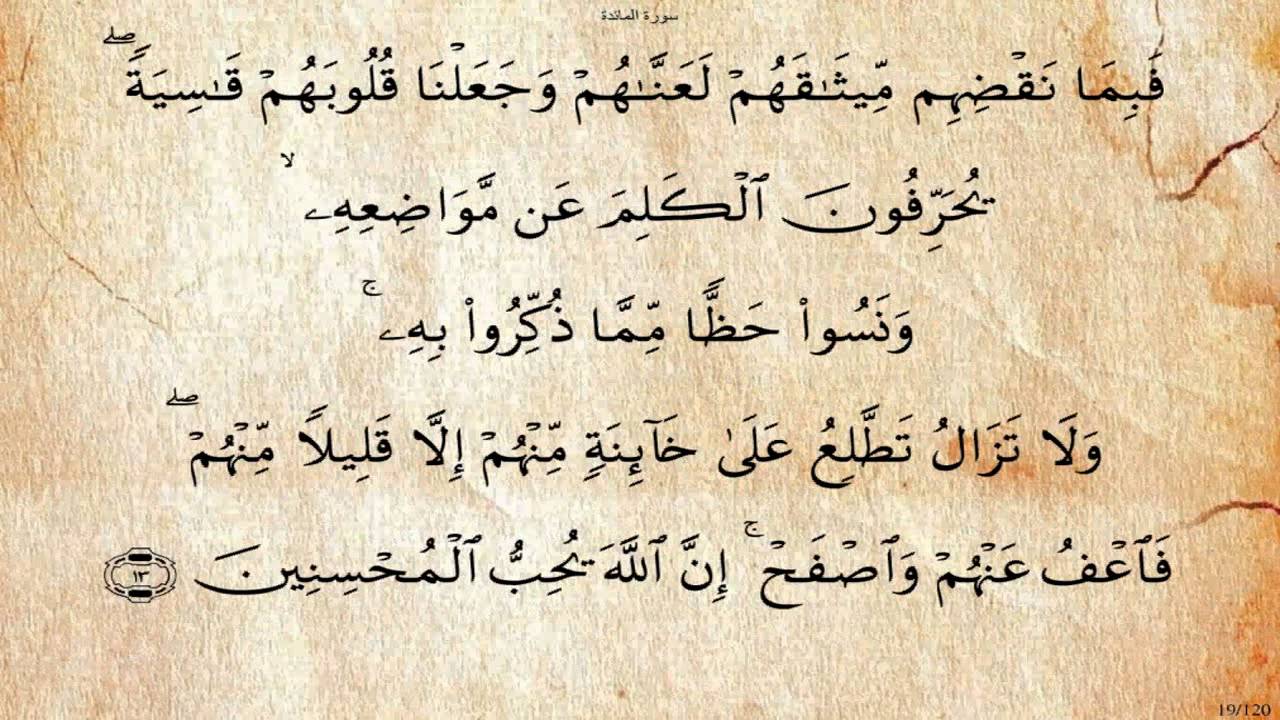 سورة المائدة
فَبِمَا نَقْضِهِم مِّيثَـٰقَهُمْ لَعَنَّـٰهُمْ وَجَعَلْنَا قُلُوبَهُمْ قَـٰسِيَةً ۖ
يُحَرِّفُونَ ٱلْكَلِمَ عَن مَّوَاضِعِهِۦ ۙ
وَنَسُوا۟ حَظًّا مِّمَّا ذُكِّرُوا۟ بِهِۦ ۚ
وَلَا تَزَالُ تَطَّلِعُ عَلَىٰ خَآئِنَةٍ مِّنْهُمْ إِلَّا قَلِيلًا مِّنْهُمْ ۖ
فَٱعْفُ عَنْهُمْ وَٱصْفَحْ ۚ إِنَّ ٱللَّهَ يُحِبُّ ٱلْمُحْسِنِينَ ١٣
19/120